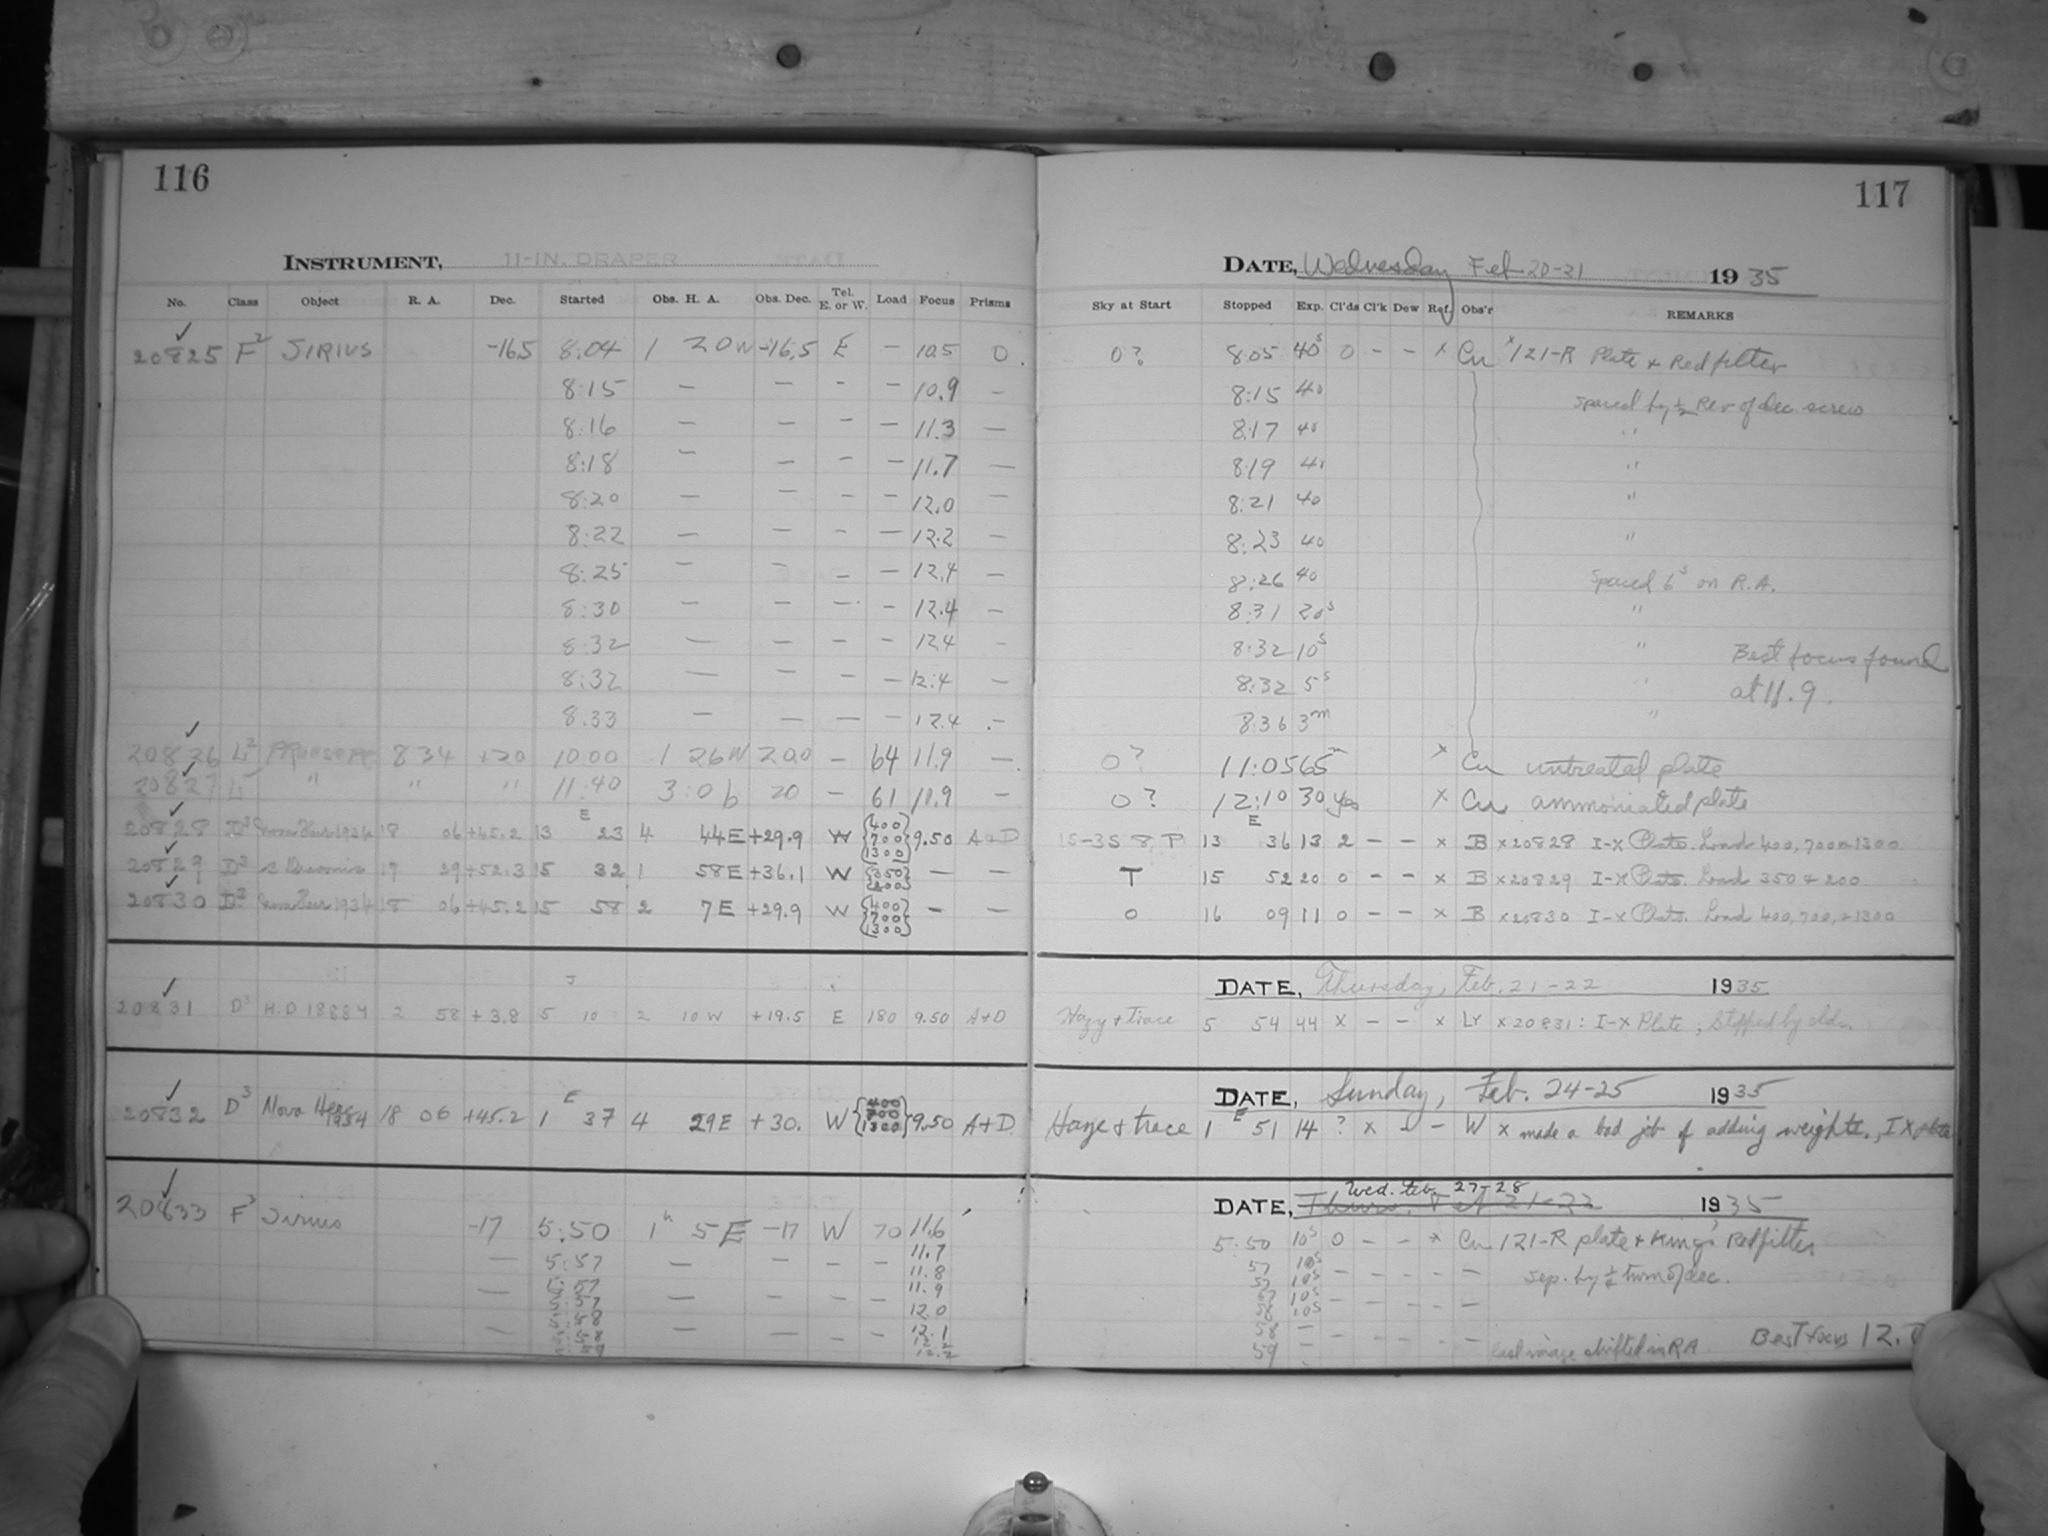 116
INSTRUMENT, 11-IN. DRAPER
No. Class Object R. A. Dec. Started Obs. H. A. Obs. Dec. Tel. E. or W. Load Focus Prisms
20825 F2 SIRIUS -16.5 8:04 1 20W -16.5 E — 10.5 0
8:15 — — - — 10.9 —
8:16 — — - — 11.3 —
8:18 — — - — 11.7 —
8:20 — — - — 12.0 —
8:22 — — - — 12.2 —
8:25 — — - — 12.4 —
8:30 — — - — 12.4 —
8:32 — — - — 12.4 —
8:32 — — - — 12.4 —
8:33 — — — — 12.4 -
20826 L2 PRAESEPE 8 34 +20 10:00 1 26W 20.0 — 64 11.9 —
20827 L " " " 11:40 3:06 20 — 61 11.9 —
20828 D3 Nova Her 1934 18 06 +45.2 13 E 23 4 44E +29.9 W {400 700 1300} 9.50 A+D
20829 D3 19 29 +52.3 15 32 1 58E +36.1 W {350 200} — —
20830 D3 Nova Her 1934 18 06 +45.2 15 58 2 7E +29.9 W {400 700 1300} — —
20831 D3 H.D 18884 2 58 +3.8 5 10 2 10W +19.5 E 180 9.50 A+D
20832 D3 Nova Herc 1934 18 06 +45.2 1 E 37 4 29E +30. W {400 700 1300} 9.50 A+D
20833 F3 Sirius -17 5:50 1h 5E -17 W 70 11.6
11.7
— 5:57 — — — — 11.8
— 5:57 — — — — 11.9
12.0
— — — — — 12.1
12.2
117
DATE, Wednesday Feb 20-21 1935
Sky at Start Stopped Exp. Cl'ds Cl'k Dew Ref. Obs'r REMARKS
0? 8:05 40s 0 - - x Cu x121-R Plate & Red filter
8:15 40 spaced by ½ Rev of dec. screw
8:17 40 "
8:19 40 "
8:21 40 "
8:23 40 "
8:26 40 Spaced 6s on R.A.
8:31 20s "
8:32 10s " Best focus found
8:32 5s " at 11.9.
8:36 3m "
0? 11:05 65m x Cu untreated plate
0? 12:10 30 yes x Cu ammoniated plate
15-35 8, P 13 E 36 13 2 - - x B x20828 I-X Plate. Load 400, 700 & 1300
T 15 52 20 0 - - x B x20829 I-X Plate. Load 350 & 200
0 16 09 11 0 - - x B x20830 I-X Plate. Load 400, 700, & 1300
DATE, Thursday, Feb. 21-22 1935
Hazy + trace 5 54 44 x - - x LY x20831: I-X Plate; Stopped by clds.
DATE, Sunday, Feb. 24-25 1935
Haze + trace 1 E 51 14 ? x - - W x made a bad job of adding weights., I X plate
Wed. Feb. 27-28
DATE, Thurs. Feb 21-22 1935
5:50 10s 0 - - x Cu 121-R plate & King's Red filter
57 10s
57 10s - - - - - sep. by ½ turn of dec.
10s
10s - - - -
59 - - - - - last image shifted in RA Best focus 12.0